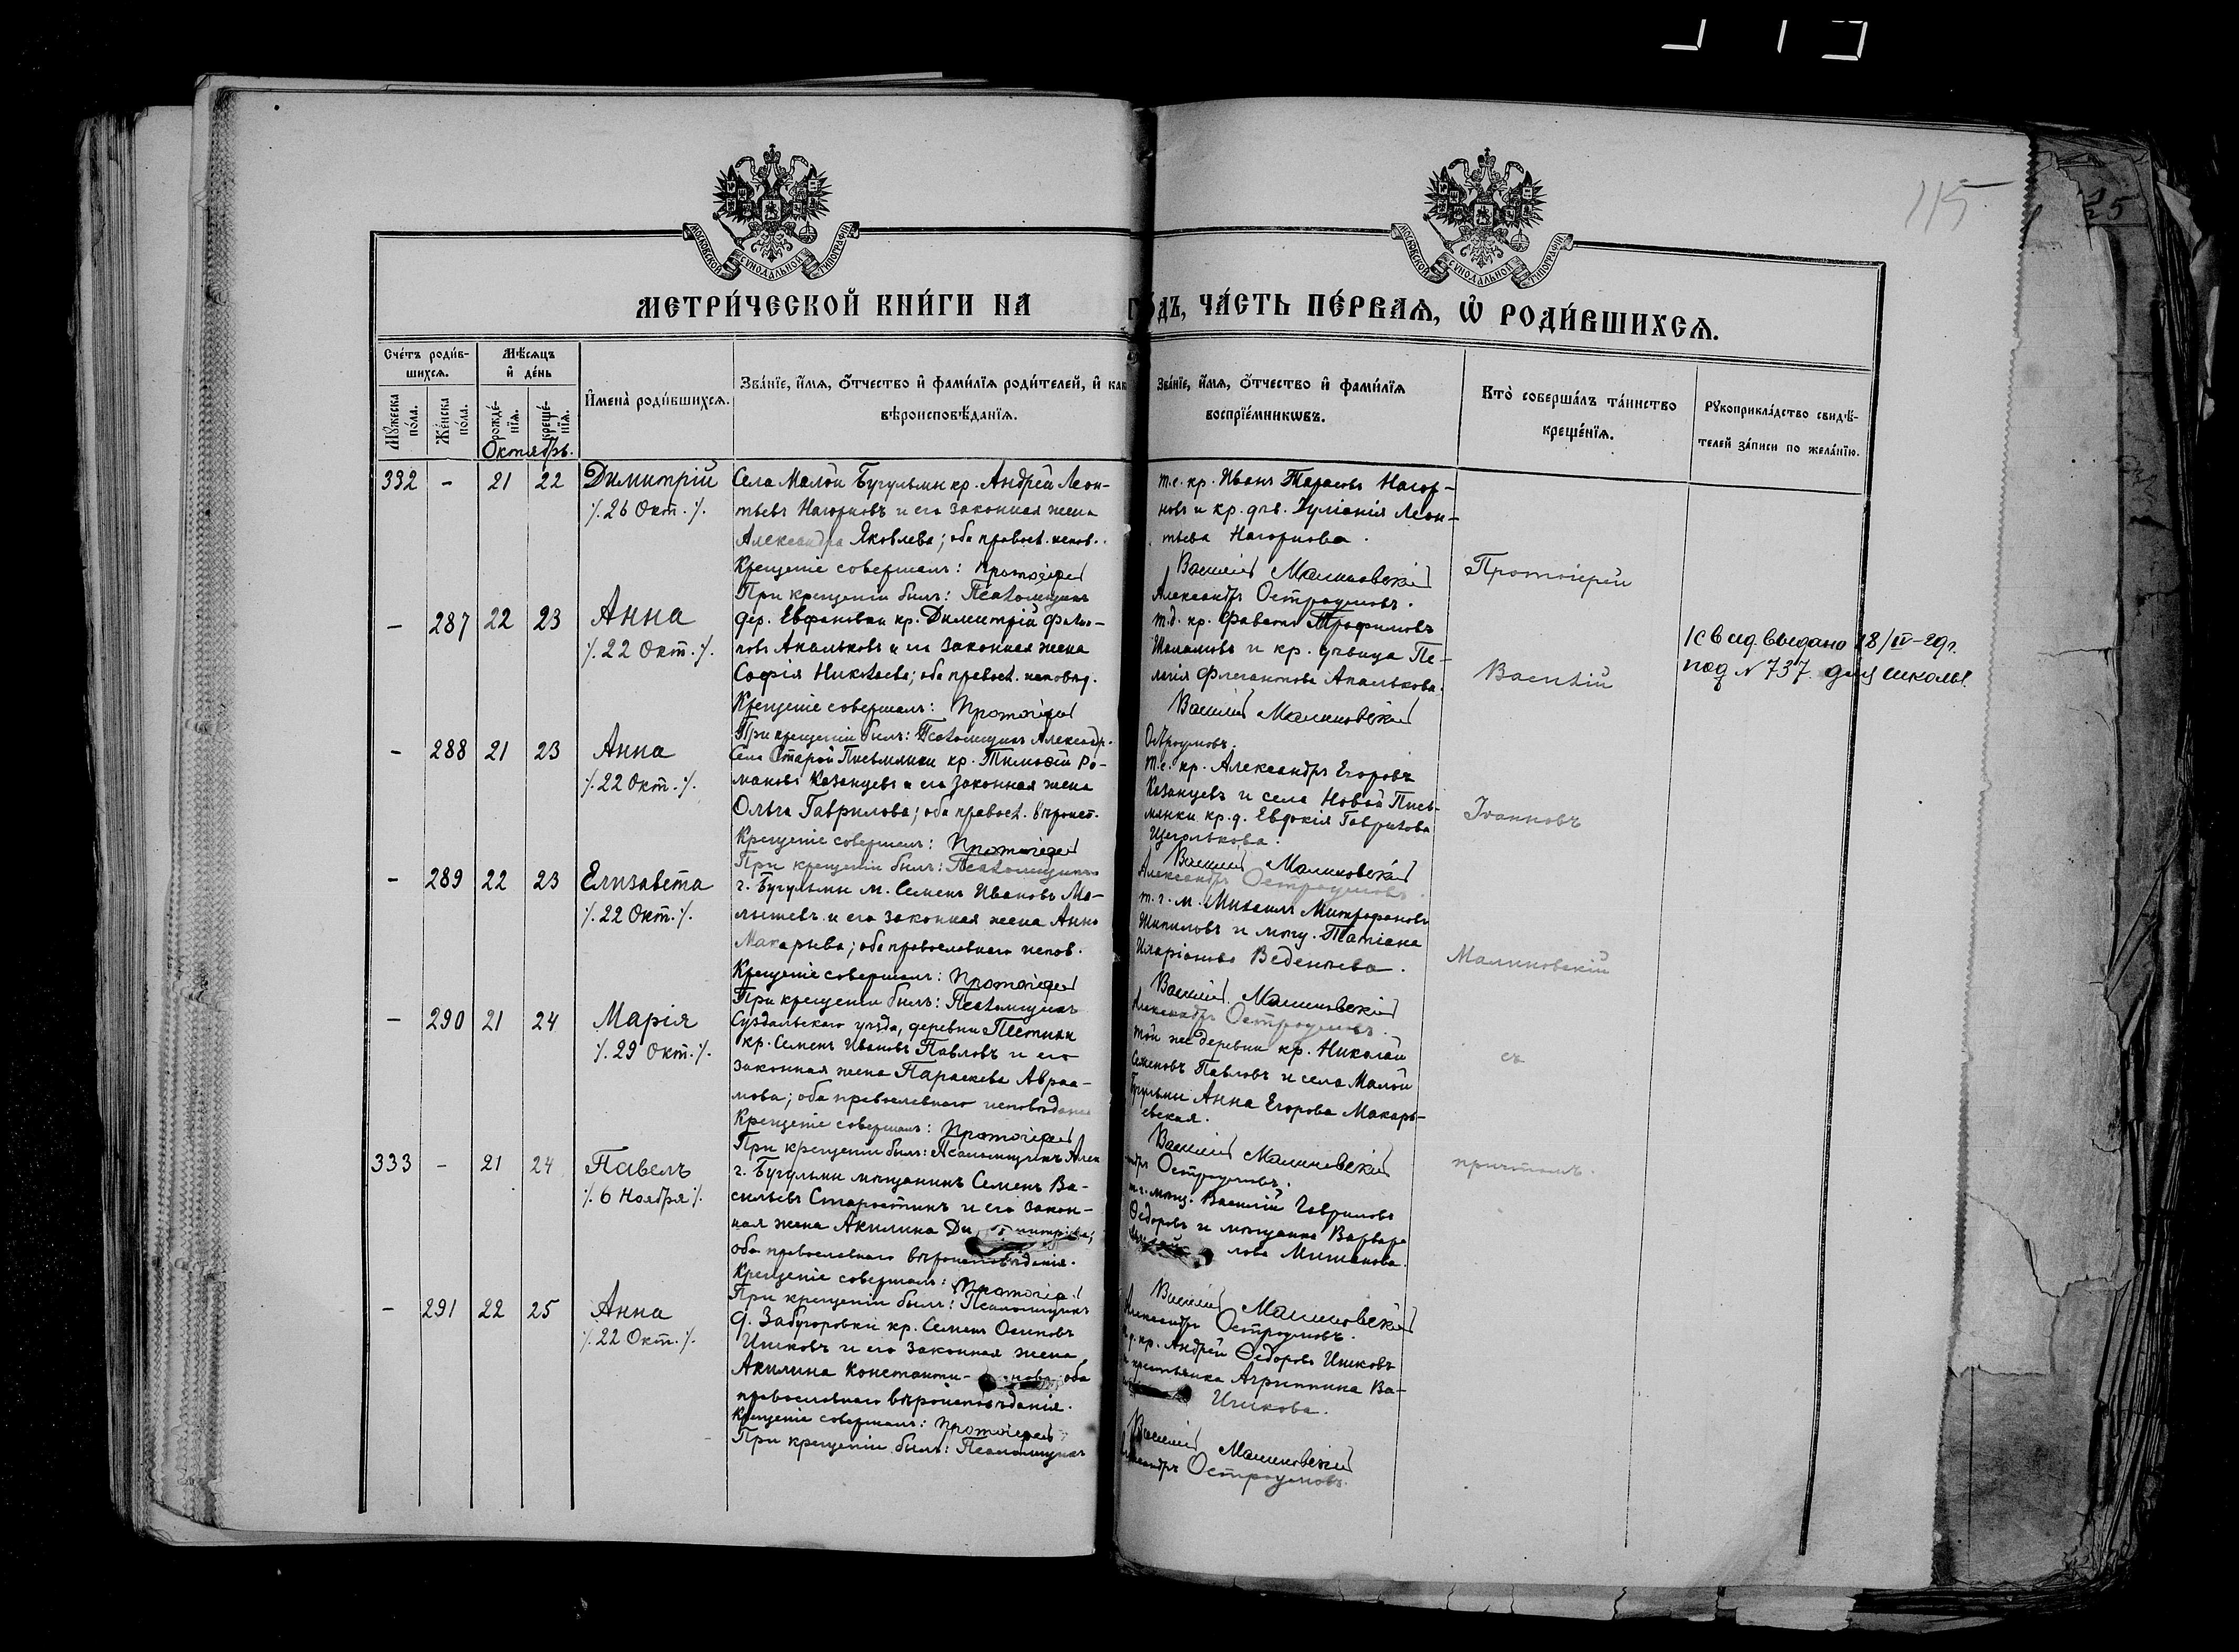 115
25
МОСКОВСКОЙ СУНОДАЛЬНОЙ ТИПОГРАФІИ
МОСКОВСКОЙ СУНОДАЛЬНОЙ ТИПОГРАФІИ
МЕТРИ́ЧЕСКОЙ КНИ́ГИ НА
ГО́ДЪ, ЧА́СТЬ ПЕ́РВАѦ, Ѡ҆ РОДИ́ВШИХСѦ.
Сче́тъ роди́в-
шихсѧ.
Мѣ́сѧцъ
и҆ де́нь
Мꙋ́жеска
по́ла.
Же́нска
по́ла.
рожде́-
нїѧ.
креще́-
нїѧ.
И҆мена̀ роди́вшихсѧ.
Зва́нїе, и҆́мѧ, ѻ҆́тчество и҆ фами́лїѧ роди́телей, и҆ как
вѣроисповѣ́данїѧ.
Зва́нїе, и҆́мѧ, ѻ҆́тчество и҆ фами́лїѧ
воспрїе́мникѡвъ.
Кто̀ соверша́лъ та́инство
креще́нїѧ.
Рꙋкоприкла́дство свидѣ́-
телей за́писи по жела́нїю.
Октябрь.
332 - 21 22 Димитрій
/. 26 Окт. /.
Села Малой Бугульмы кр. Андрей Леон-
тьевъ Нагорновъ и его законная жена
Александра Яковлева; оба правосл. испов.
Крещеніе совершалъ: Протоіерей
При крещеніи былъ: Псаломщикъ
т.с. кр. Иванъ Тарасовъ Нагор-
новъ и кр. дѣв. Іуліанія Леон-
тьева Нагорнова.
Василій Малиновскій
Александръ Остроумовъ.
Протоіерей
- 287 22 23 Анна
/. 22 Окт. /.
дер. Евфановки кр. Димитрій Фило-
новъ Апальковъ и его законная жена
Софія Николаева; оба правосл. исповѣд.
Крещеніе совершалъ: Протоіерей
При крещеніи былъ: Псаломщикъ Александр.
т.д. кр. Трофимовъ
Шаламовъ и кр. дѣвица Пе-
лагія Апалькова.
Василій Малиновскій
Остроумовъ.
Василій
выдано 18/IV-29г.
под N 737. для школы.
- 288 21 23 Анна
/. 22 Окт. /.
Села Старой Письмянки кр. Тимоѳей Ро-
мановъ Казанцевъ и его законная жена
Ольга Гаврилова; оба правосл. вѣроисп.
Крещеніе совершалъ: Протоіерей
При крещеніи былъ: Псаломщикъ
т.с. кр. Александръ Егоровъ
Казанцевъ и села Новой Пись-
мянки кр. д. Евдокія Гаврилова
Щеголькова.
Василій Малиновскій
Александръ Остроумовъ.
Іоанновъ
- 289 22 23 Елизавета
/. 22 Окт. /.
г. Бугульмы м. Семенъ Ивановъ Ма-
лышевъ и его законная жена Анна
Макарьева; оба православнаго испов.
Крещеніе совершалъ: Протоіерей
При крещеніи былъ: Псаломщикъ
т. г. м. Михаилъ Митрофановъ
Шипиловъ и мѣщ. Татіана
Иларіонова Веденѣева.
Василій Малиновскій
Александръ Остроумовъ.
Малиновскій
- 290 21 24 Марія
/. 29 Окт. /.
Суздальскаго уѣзда, деревни Пестики
кр. Семенъ Ивановъ Павловъ и его
законная жена Параскева Авраа-
мова; оба православнаго исповѣданія
Крещеніе совершалъ: Протоіерей
При крещеніи былъ: Псаломщикъ Алек
той же деревни кр. Николай
Семеновъ Павловъ и села Малой
Бугульмы Анна Егорова Макарь-
евская.
Василій Малиновскій
сандръ Остроумовъ.
съ
333 - 21 24 Павелъ
/. 6 Ноября /.
г. Бугульмы мѣщанинъ Семенъ Ва-
сильевъ Старостинъ и его закон-
ная жена Акилина Димитріева;
оба православнаго вѣроисповѣданія.
Крещеніе совершалъ: Протоіерей
При крещеніи былъ: Псаломщикъ
т. г. мѣщ. Василій Гавриловъ
Ѳедоровъ и мѣщанка Варвара
лова Мишанова.
Василій Малиновскій
Александръ Остроумовъ.
причтомъ.
- 291 22 25 Анна
/. 22 Окт. /.
д. Забугоровки кр. Семенъ Осиповъ
Ишковъ и его законная жена
Акилина Константи- нова; оба
православнаго вѣроисповѣданія.
Крещеніе совершалъ: Протоіерей
При крещеніи былъ: Псаломщикъ
д. кр. Андрей Ѳедоровъ Ишковъ
и крестьянка Агриппина Ва-
Ишкова.
Василій Малиновскій
Александръ Остроумовъ.